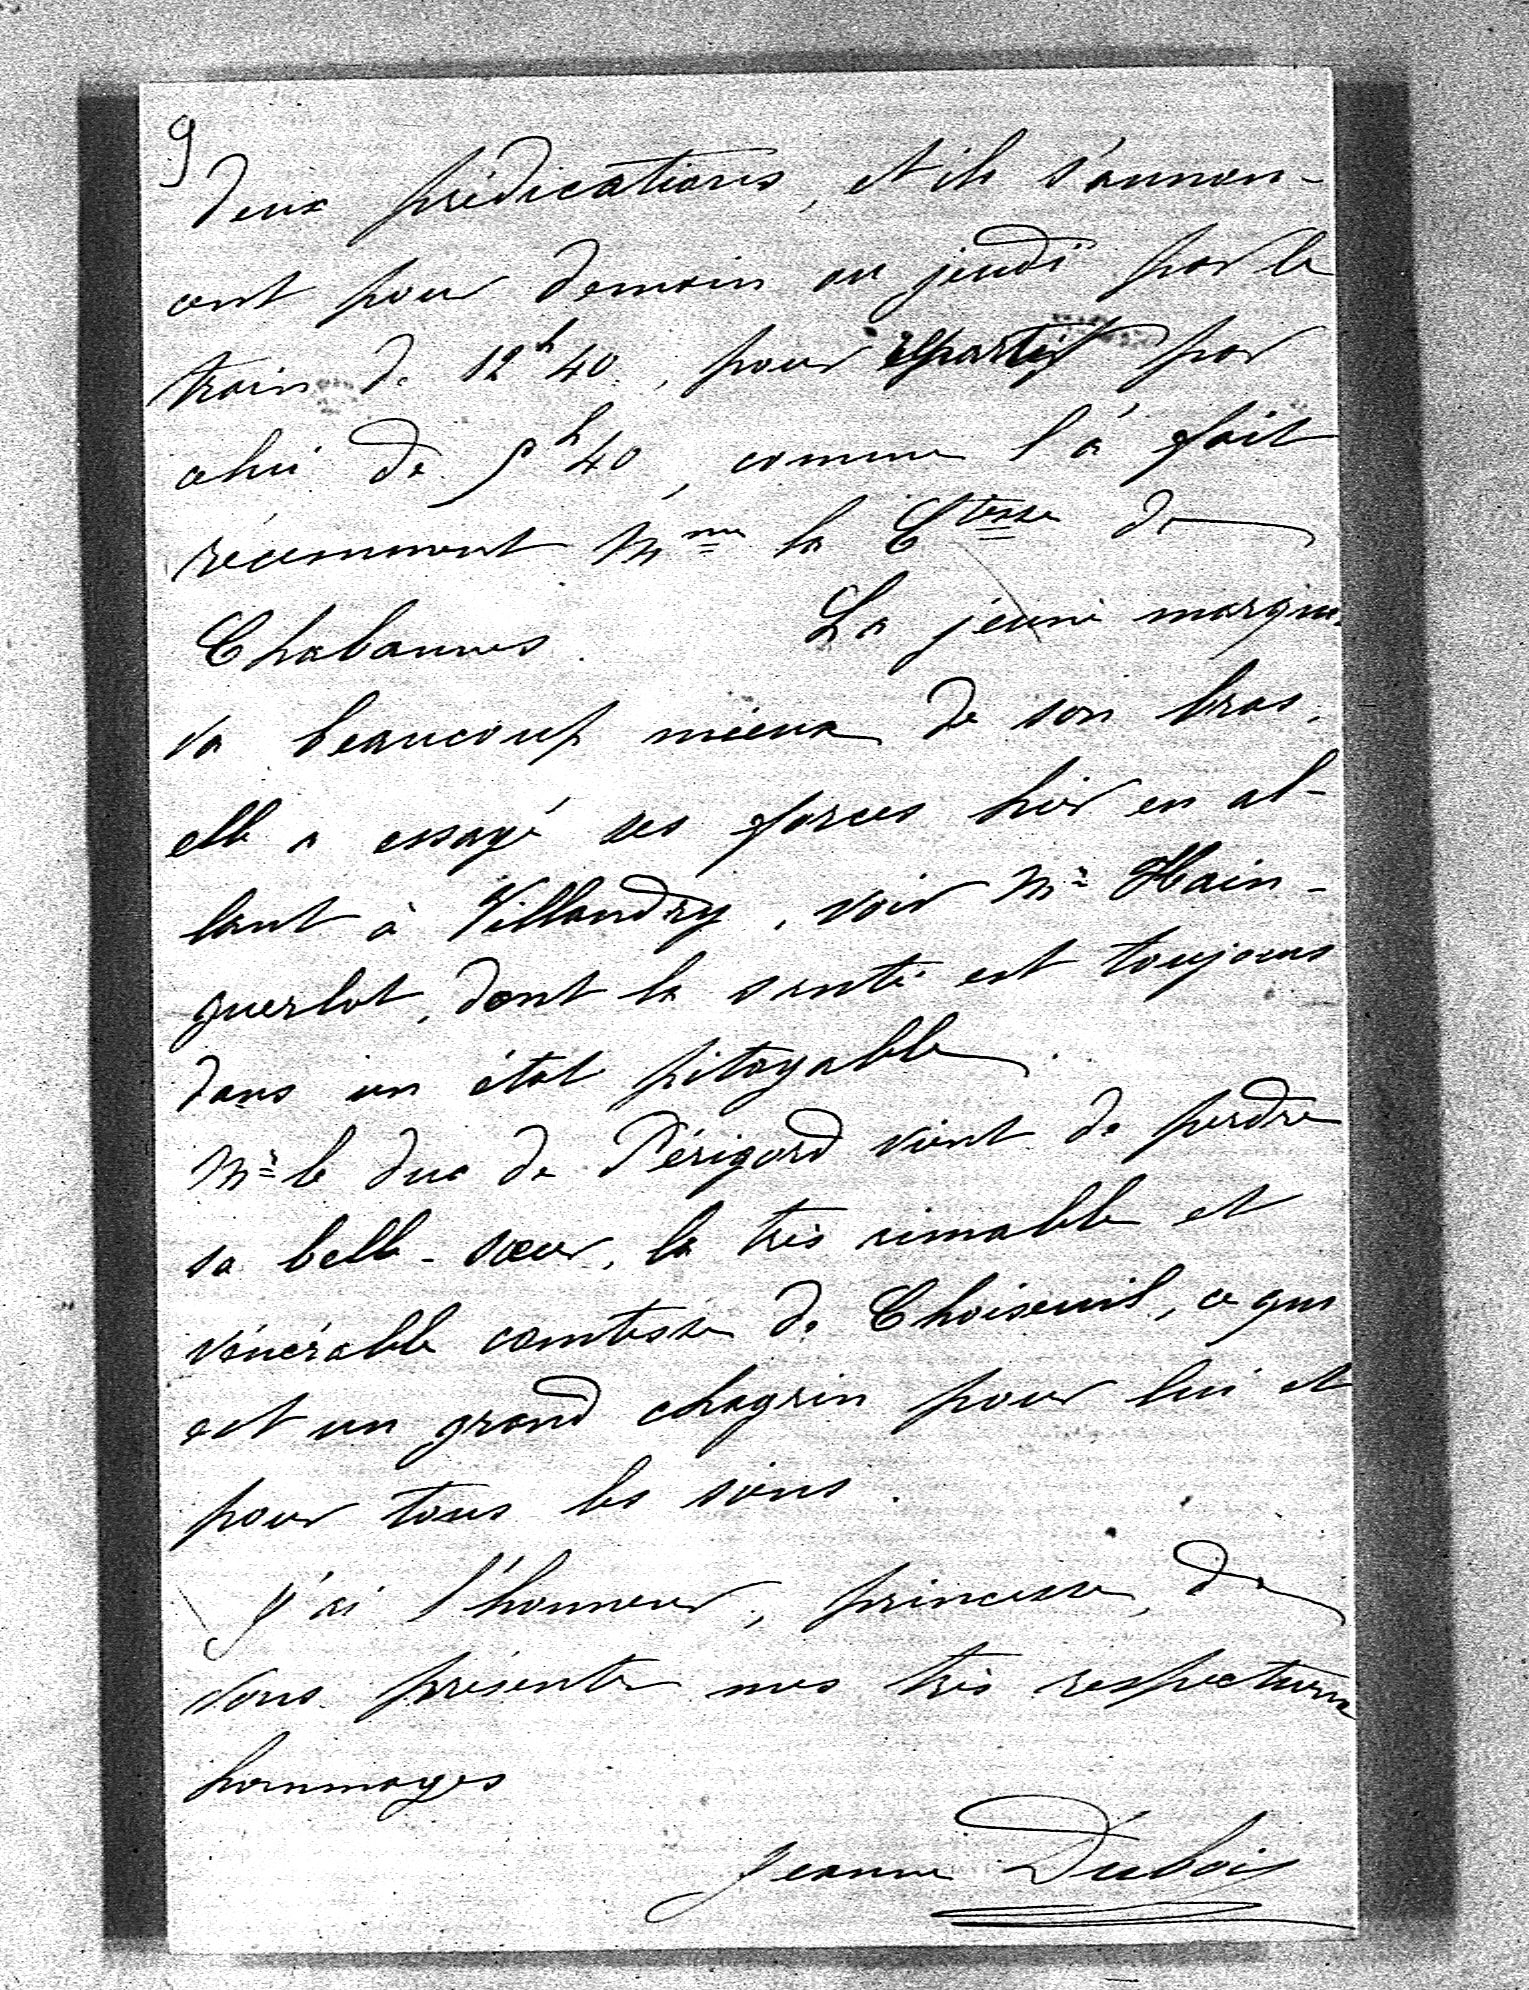 9
deux prédications, et ils s'annon-
cent pour demain ou jeudi par le
train de 12h40, pour repartir par
celui de 5h40, comme l'a fait
récemment Mme la Ctesse de
Chabannes. La jeune marquise
va beaucoup mieux de son bras,
elle a essayé ses forces hier en al-
lant à Villandry, voir Mr Hain-
guerlot, dont la santé est toujours
dans un état pitoyable.
Mr le duc de Périgord vient de perdre
sa belle-sœur, la très aimable et
vénérable comtesse de Choiseuil, ce qui
est un grand chagrin pour lui et
pour tous les siens.
J'ai l'honneur, princesse, de
vous présenter mes très respectueux
hommages
Jeanne Dubois